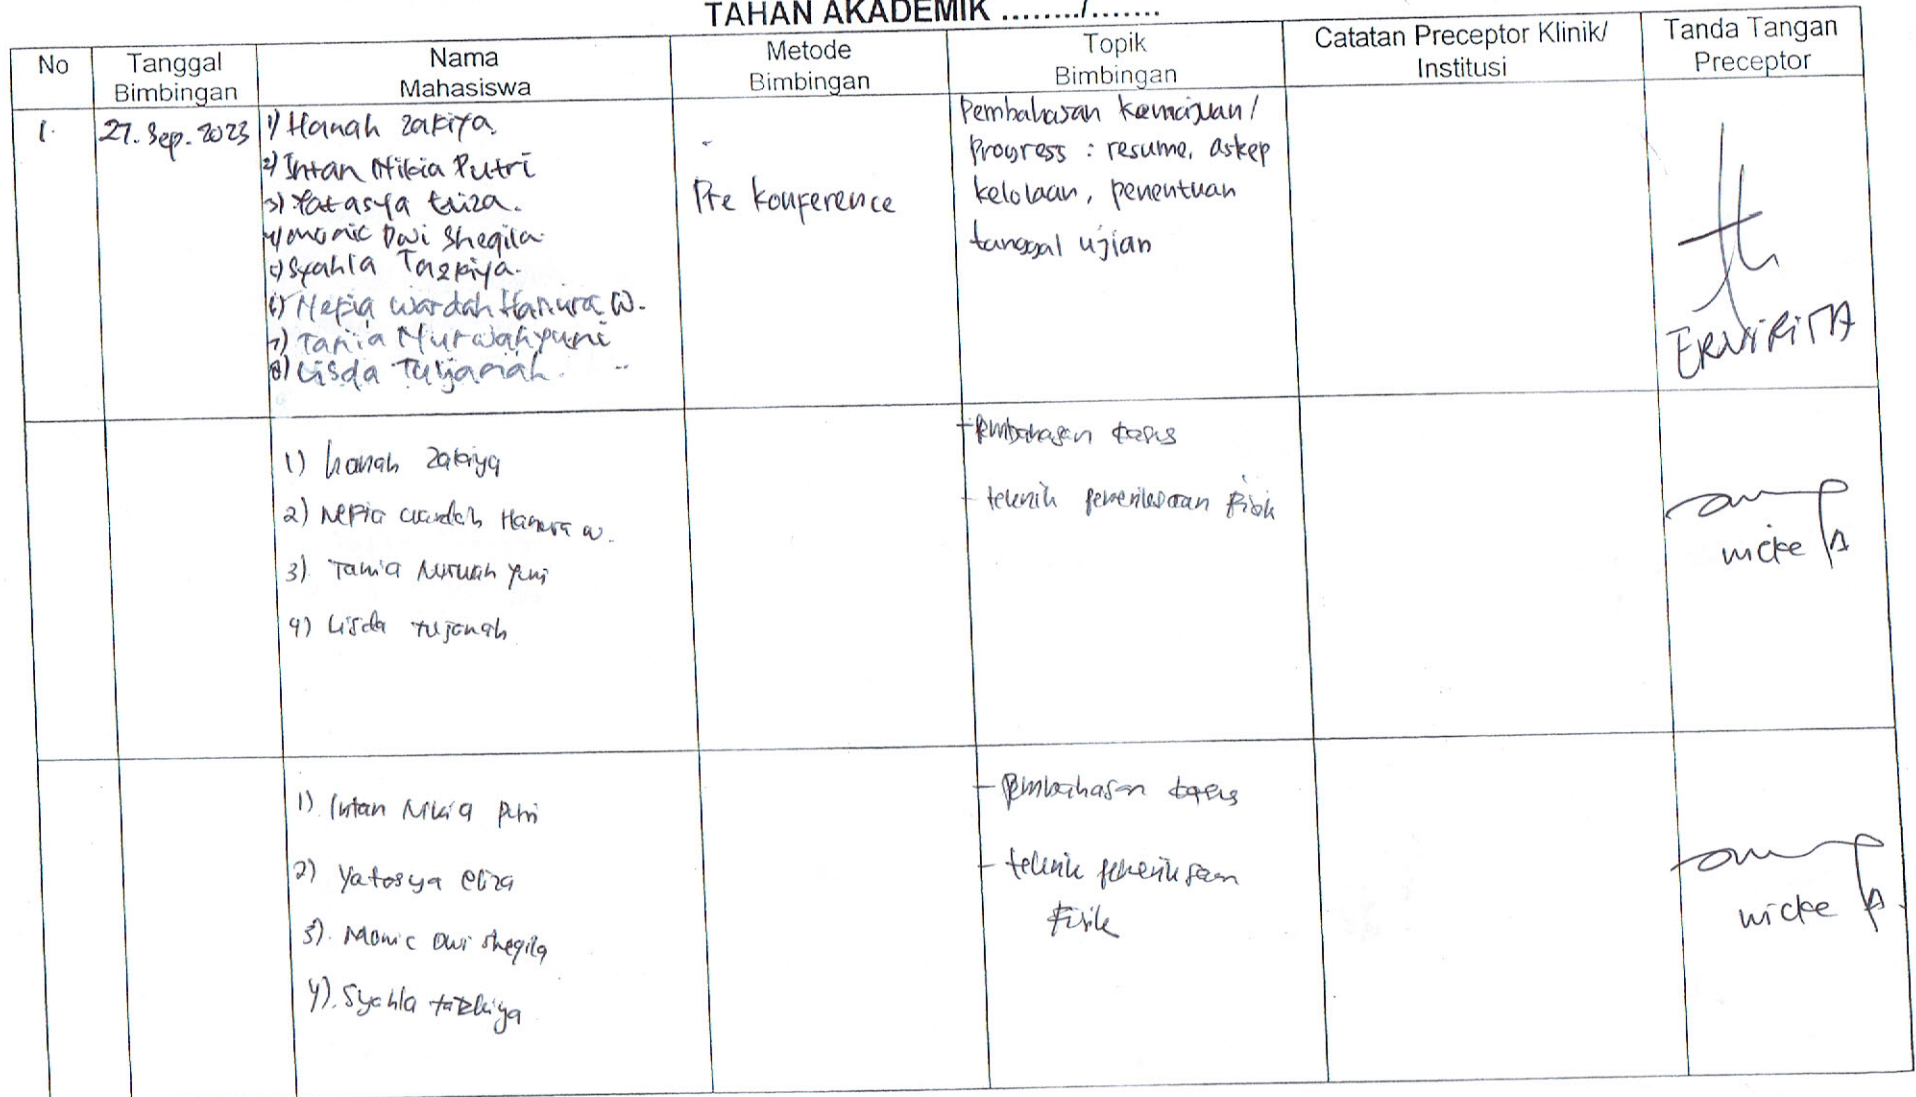 TAHAN AKADEMIK ......../.......
No
Tanggal
Bimbingan
Nama
Mahasiswa
Metode
Bimbingan
Topik
Bimbingan
Catatan Preceptor Klinik/
Institusi
Tanda Tangan
Preceptor
1.
27. Sep. 2023
1) Hanah Zakiya
2) Intan Nikia Putri
3) Yatasya Eliza.
4) Monic Dwi Sheqila
5) Syahla Tazkiya.
6) Nefia Wardah Hanura W.
7) Tania Nurwahyuni
8) Lisda Tujanah
Pre konference
Pembahasan kemajuan/
Progress : resume, askep
kelolaan, penentuan
tanggal ujian
ERNIRITA
1) hanah zakiya
2) Nefia wardah Hanura w.
3) Tania Nurwah yuni
4) Lisda tujanah
- Pembahasan kasus
- teknik pemeriksaan fisik
nicke
1) Intan Nikia Putri
2) Yatasya eliza
3). Monic Dwi sheqila
4). Syahla tazkiya
- Pembahasan kasus
- teknik pemeriksaan
fisik
nicke